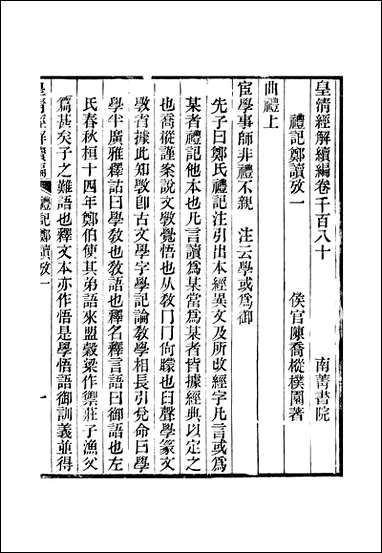 皇清經解續編卷千百八十
南菁書院
禮記鄭讀攷一
侯官陳喬樅樸園著
曲禮上
宦學事師非禮不親　注云學或爲御
先子曰鄭氏禮記注引出本經異文及所改經字凡言或爲
某者禮記他本也凡言讀爲某當爲某者皆據經典以定之
也喬樅謹案說文敎覺悟也从敎冂冂尙矇也臼聲學篆文
斆省據此知斆卽古文學字學記論敎學相長引兌命曰學
學半廣雅釋詁曰學敎也敎語也釋名釋言語曰御語也左
氏春秋桓十四年鄭伯使其弟語來盟穀梁作禦莊子漁父
篇甚矣子之難語也釋文本亦作悟是學悟語御訓義並得
皇清經解續編
禮記鄭讀攷一
一